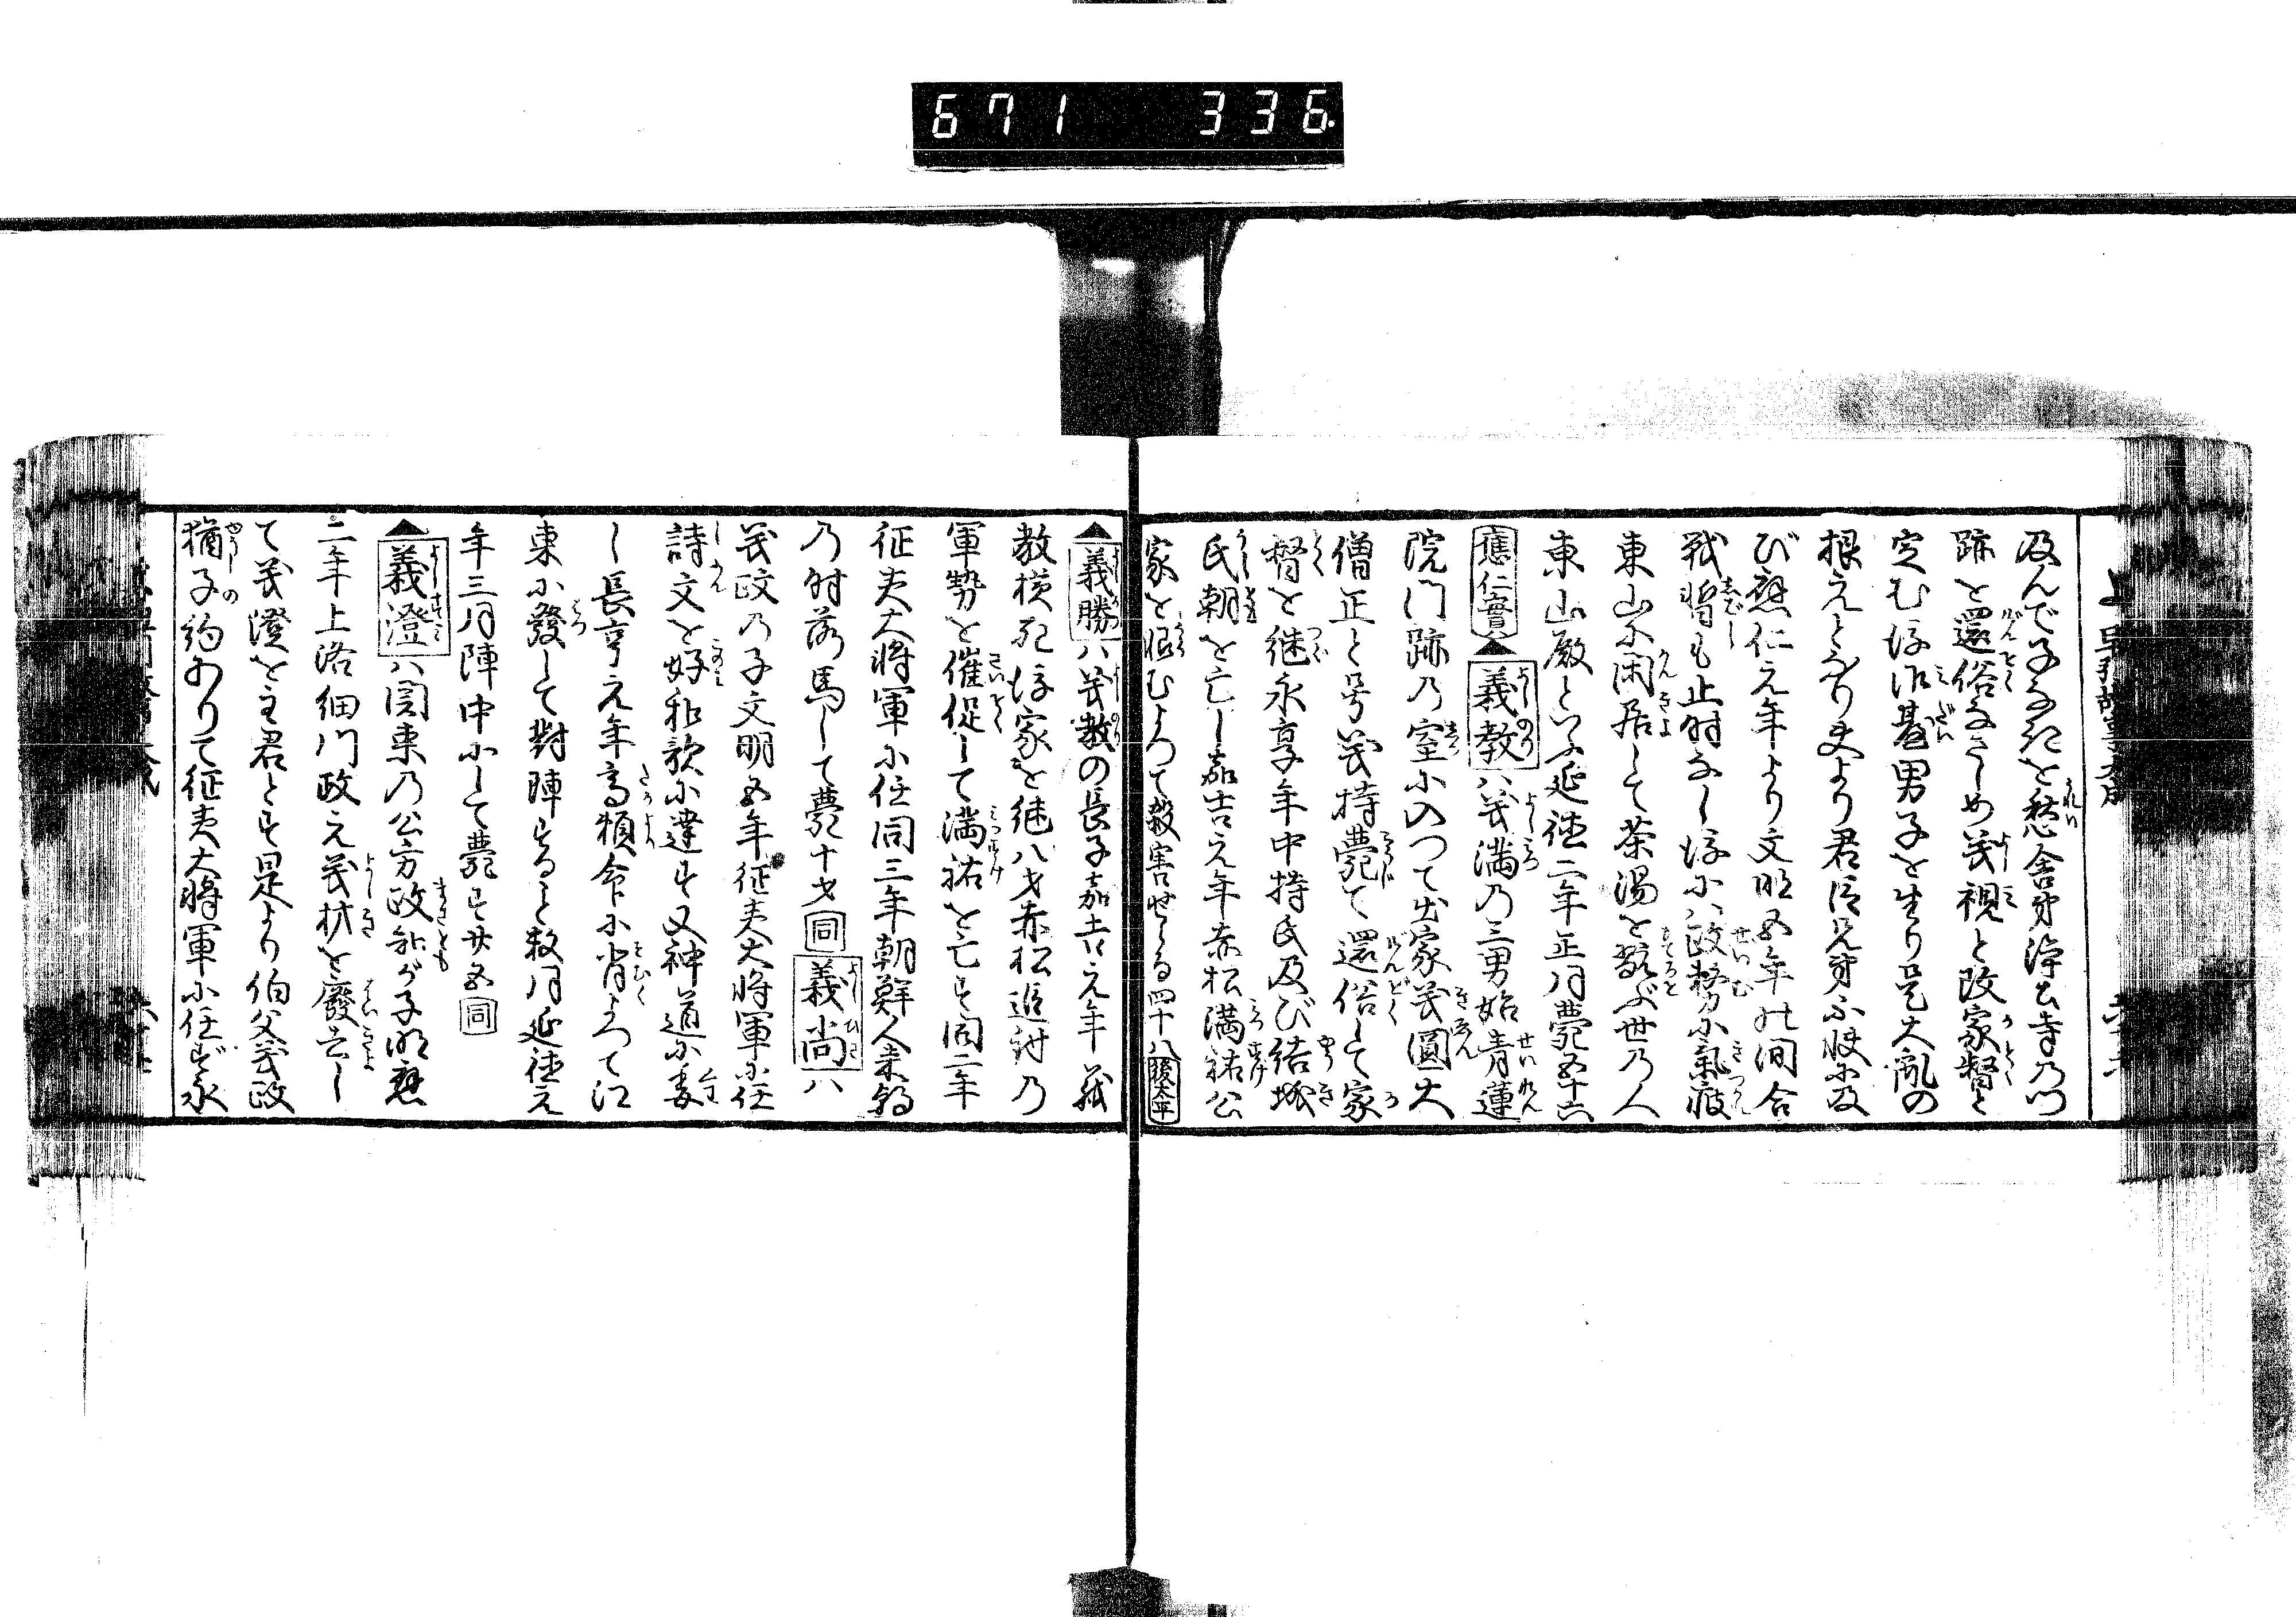 671 336
及んで子なきを愁舎弟浄土寺の門
跡を還俗なさしめ義視と改家督と
定む後御臺男子を生り是大乱の
根元となり夫より君臣兄弟不快に及
び應仁元年より文明五年の間合
戦暫も止時なし後に政務に氣疲
東山に閑居して茶湯を翫ぶ世の人
東山殿といふ延徳二年正月薨五十六
應仁響▲義教ハ義満の三男始青蓮
院門跡の室に入つて出家義圓大
僧正と号義持薨じて還俗して家
督を継永享年中持氏及び結城
氏朝を亡し嘉吉元年赤松満祐公
家を恨むよつて殺害せらる四十八後太平
▲義勝ハ義教の長子嘉吉元年義
教横死後家を継八才赤松追討の
軍勢を催促して満祐を亡す同二年
征夷大将軍に任同三年朝鮮人来朝
の時落馬して薨十才同義尚ハ
義政の子文明五年征夷大将軍に任
詩文を好和歌に達す又神道に委
し長享元年高頼命に背よつて江
東に發して對陣すること数月延徳元
年三月陣中にして薨す廿五同
▲義澄ハ関東の公方政知が子明應
二年上洛細川政元義材を廢去し
て義澄を主君とす是より伯父義政
猶子の約ありて征夷大将軍に任ず永